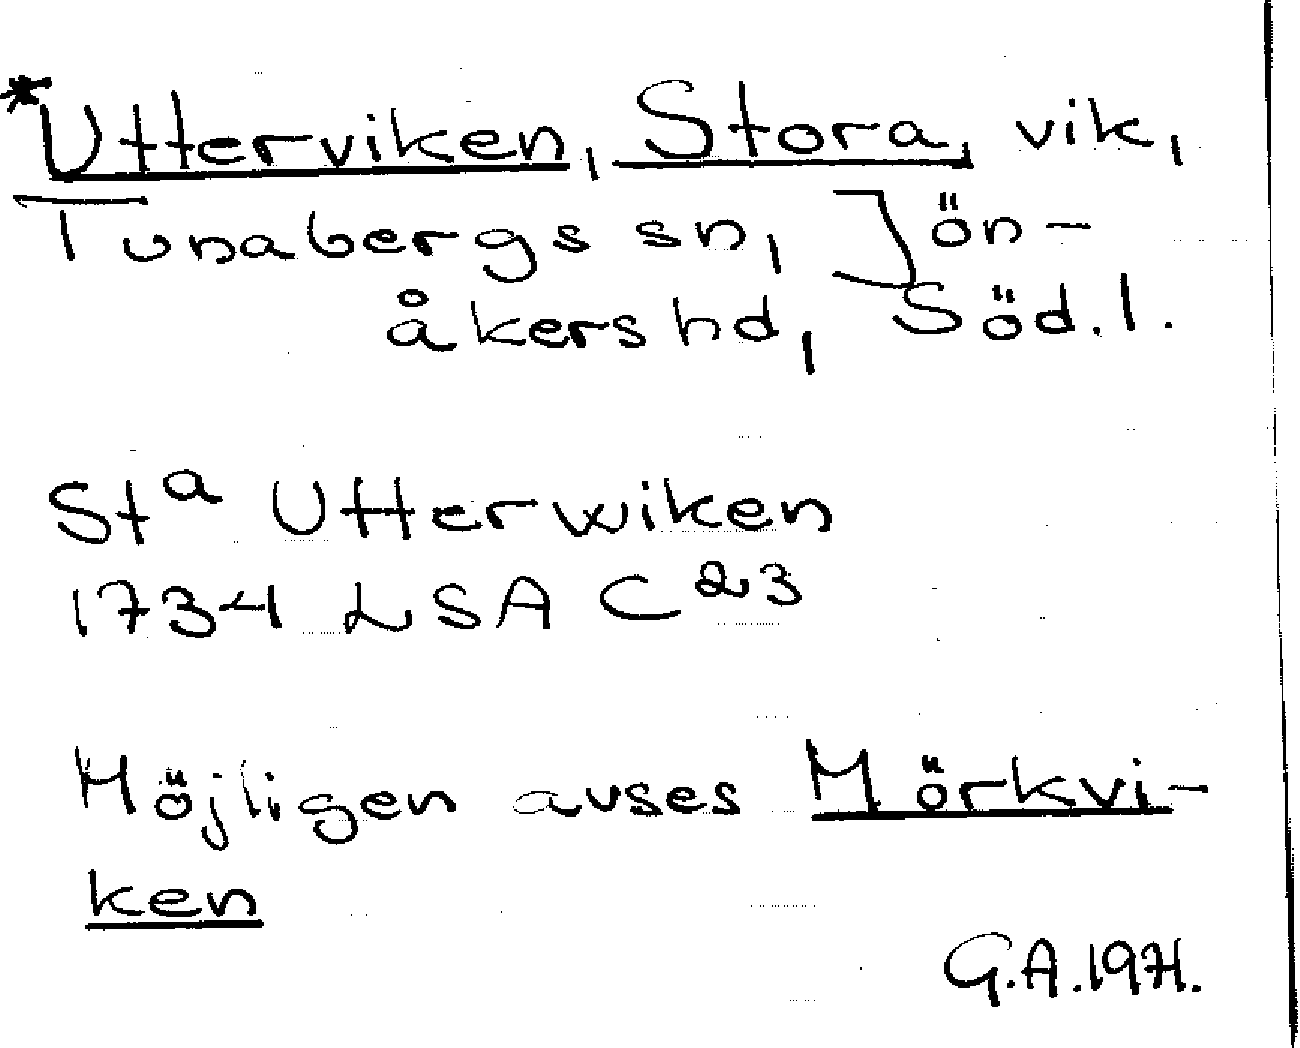 *Utterviken, Stora, vik,
Tunabergs sn, Jön-
åkers hd, Söd. l.
Stª Utterwiken
1734 LSA C²³
Möjligen avses Mörkvi-
ken
G.A. 1971.